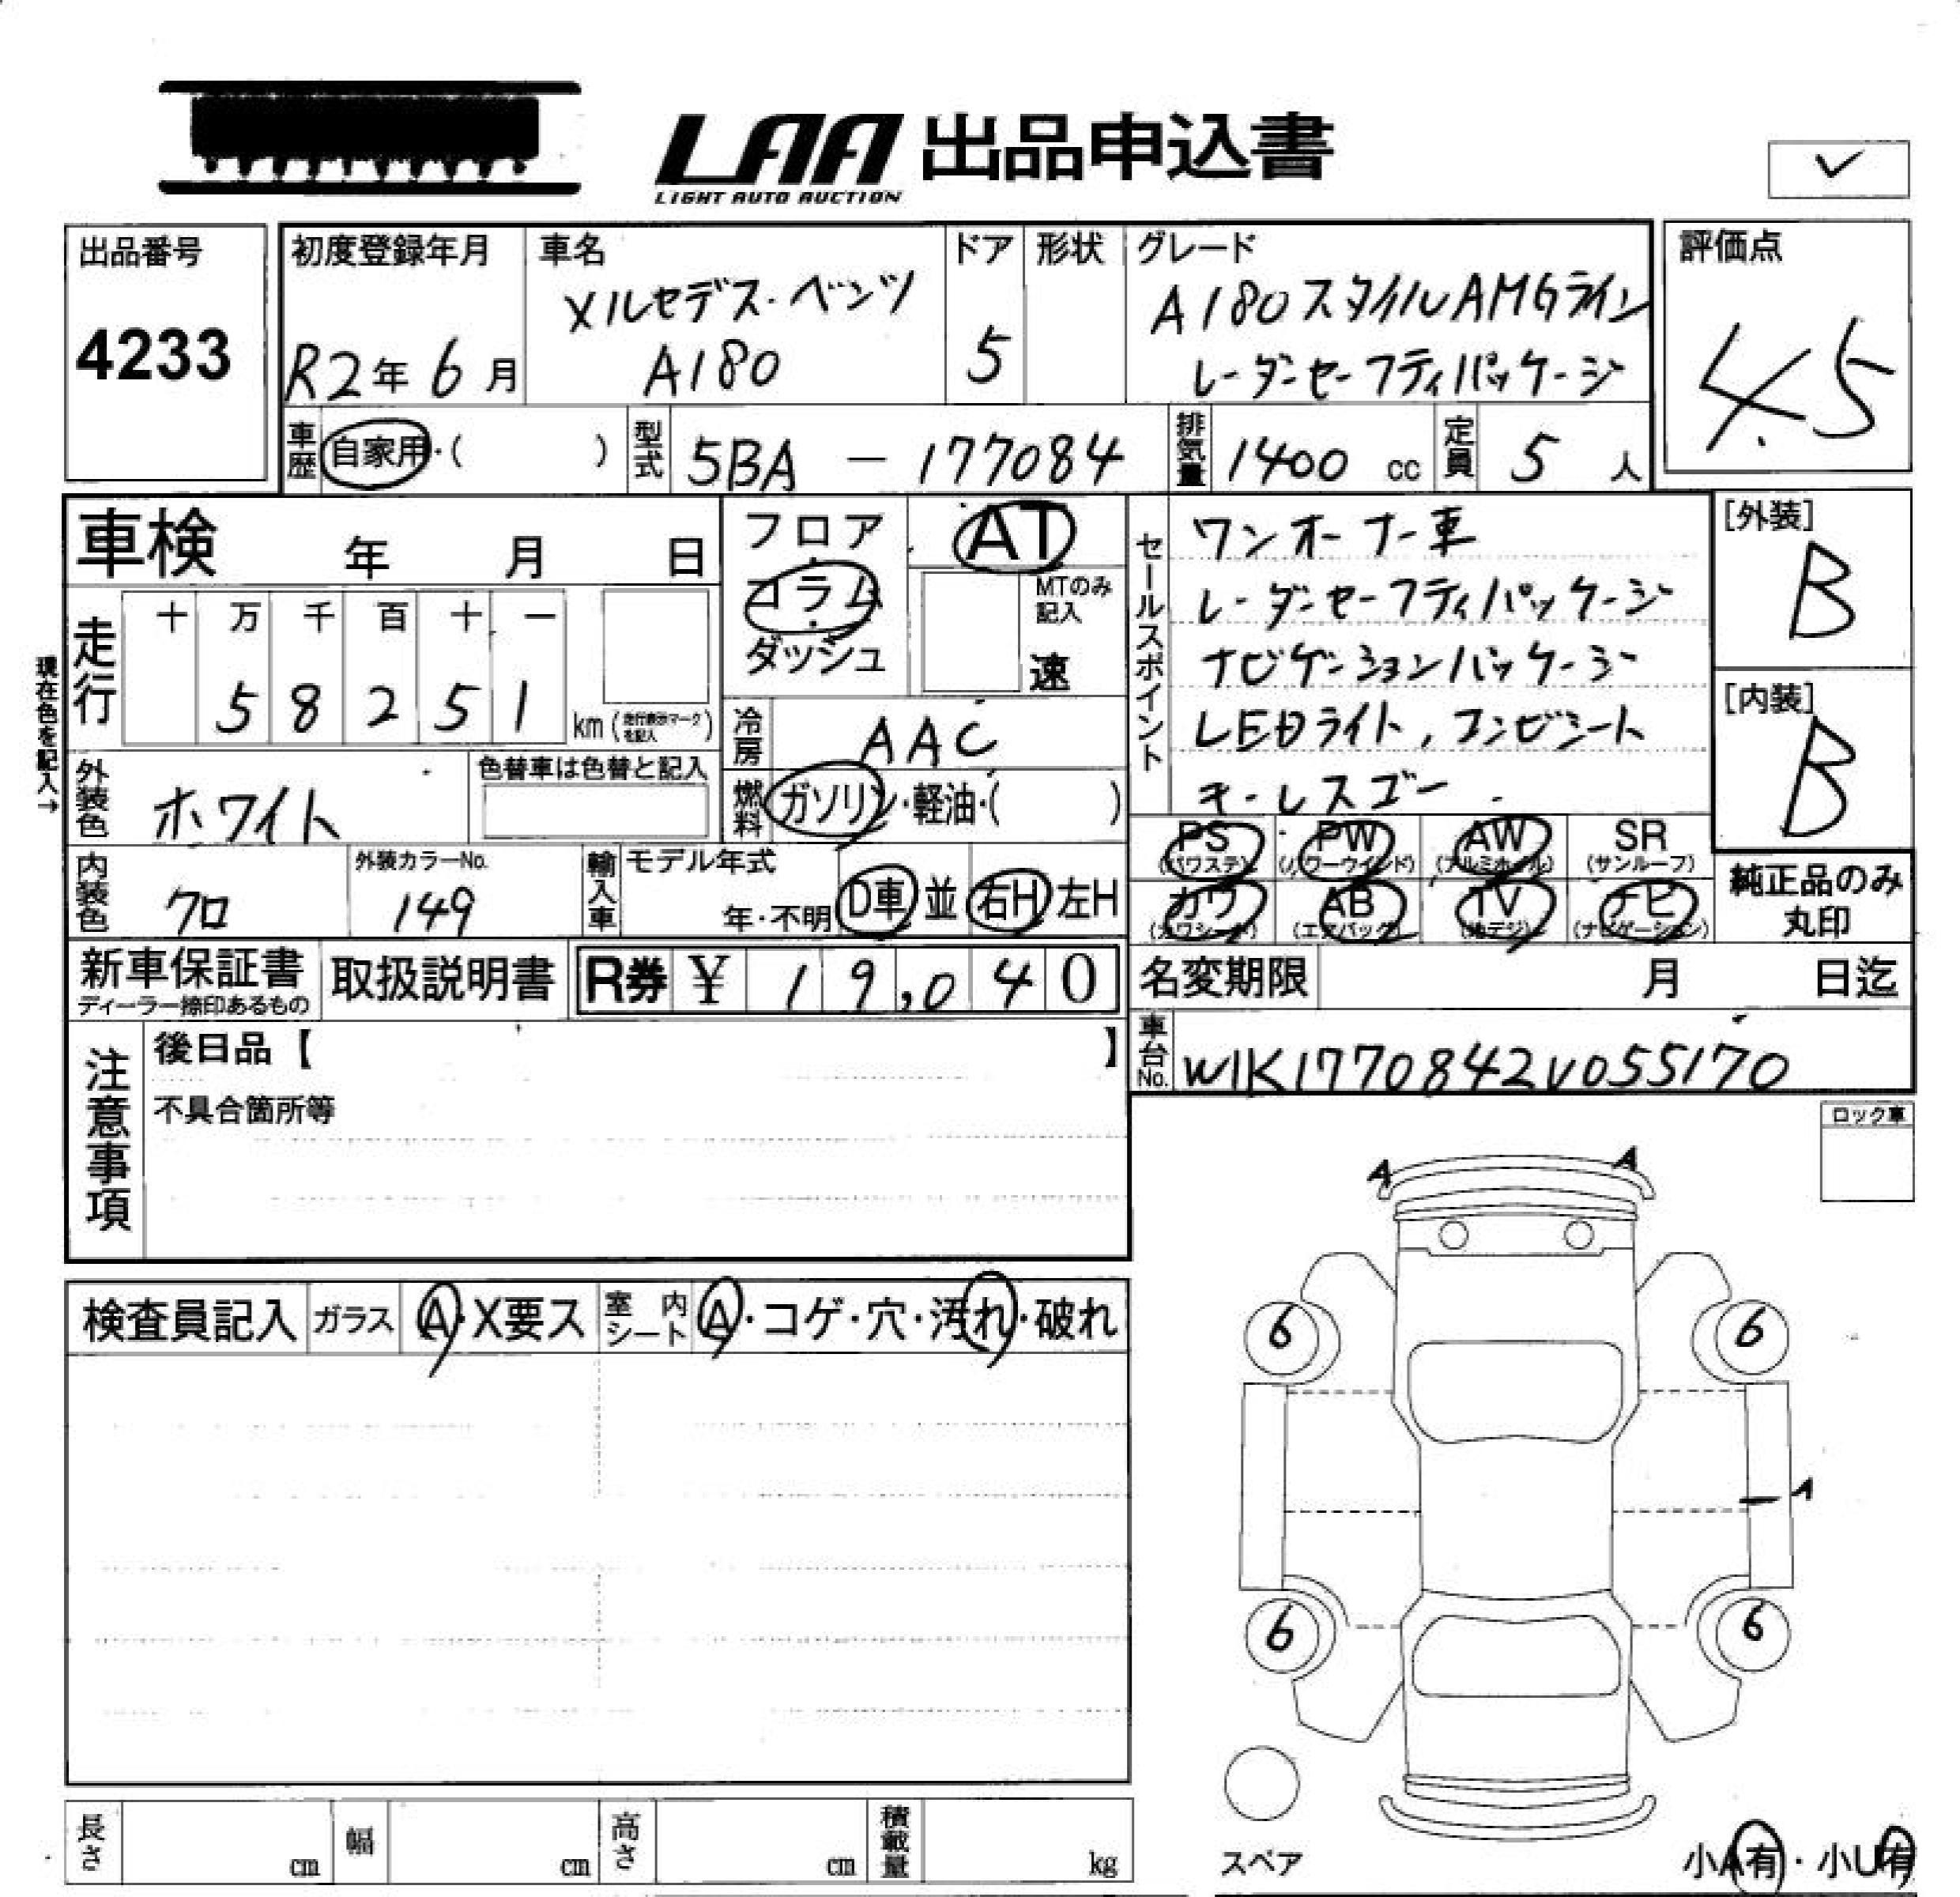 LAA 出品申込書
LIGHT AUTO AUCTION
出品番号
4233
初度登録年月
R2年 6月
車名
メルセデス・ベンツ
A180
ドア
5
形状
グレード
A180スタイルAMGライン
レーダーセーフティパッケージ
評価点
4.5
車歴
自家用・( )
型式
5BA - 177084
排気量
1400 cc
定員
5 人
車検 年 月 日
走行
十 万 千 百 十 一
5 8 2 5 1
km (走行表示マークを記入)
現在色を記入→
外装色
ホワイト
色替車は色替と記入
内装色
クロ
外装カラーNo.
149
フロア
・
コラム
・
ダッシュ
AT
MTのみ
記入
速
冷房
AAC
燃料
ガソリン・軽油・( )
輸入車
モデル年式
年・不明
D車 並
右H 左H
セールスポイント
ワンオーナー車
レーダーセーフティパッケージ
ナビゲーションパッケージ
LEDライト, コンビシート
キーレスゴー
[外装]
B
[内装]
B
PS
(パワステ)
PW
(パワーウインド)
AW
(アルミホイル)
SR
(サンルーフ)
カワ
(カワシート)
AB
(エアバッグ)
TV
(地デジ)
ナビ
(ナビゲーション)
純正品のみ
丸印
新車保証書
ディーラー捺印あるもの
取扱説明書
R券 ¥ 19,040
名変期限 月 日迄
車台No.
W1K1770842V055170
注意事項
後日品【 】
不具合箇所等
ロック車
A A
6 6
A
6 6
スペア
小A有・小U有
検査員記入
ガラス
A・X要ス
室内シート
A・コゲ・穴・汚れ・破れ
長さ cm
幅 cm
高さ cm
積載量 kg